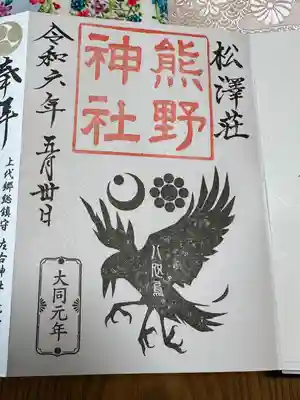 松澤荘
熊野
神社
八咫烏
令和六年 五月廿日
大同元年
奉拝
上代郷総鎮守 左右神社